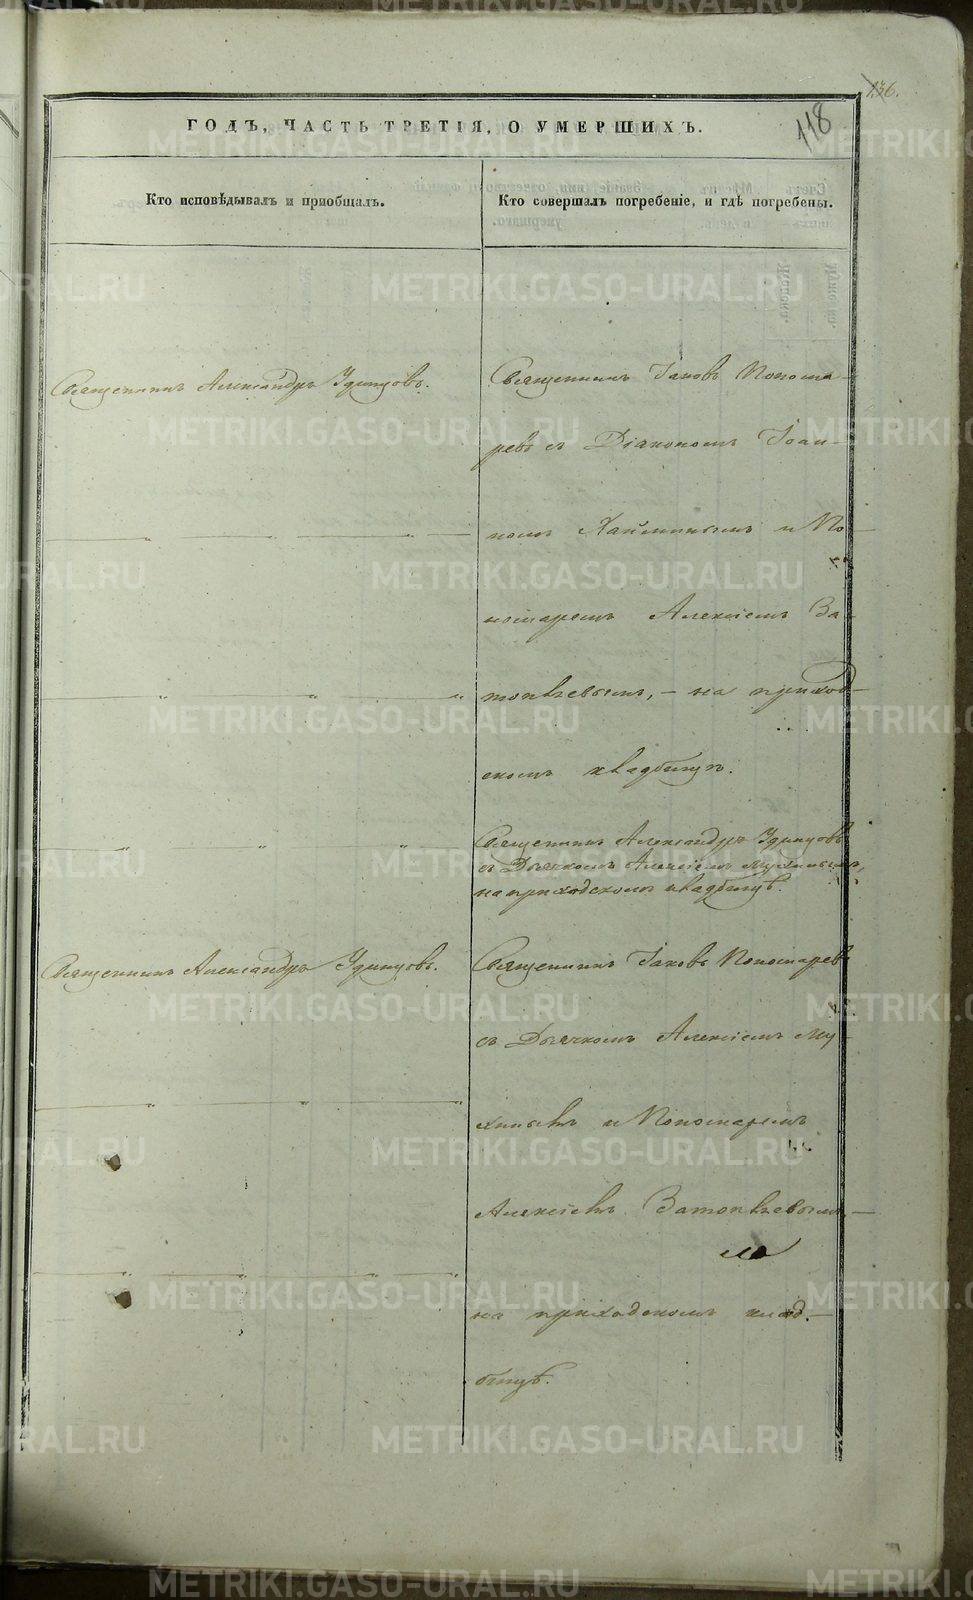 136.
118
ГОДЪ, ЧАСТЬ ТРЕТІЯ, О УМЕРШИХЪ.
Кто исповѣдывалъ и пріобщалъ.
Кто совершалъ погребеніе, и гдѣ погребены.
Священникъ Александръ Удинцовъ.
Священникъ Іаковъ Понома-
ревъ съ Діакономъ Іоан-
номъ и По-
номаремъ Алексіемъ За-
топляевымъ, - на приход-
скомъ кладбищѣ.
Священникъ Александръ Удинцовъ
съ Дьячкомъ Алексіемъ Мухинымъ,
на приходскомъ кладбищѣ.
Священникъ Александръ Удинцовъ.
Священникъ Іаковъ Пономаревъ
съ Дьячкомъ Алексіемъ Му-
хинымъ и Пономаремъ
Алексіемъ Затопляевымъ, -
на приходскомъ клад-
бищѣ.
METRIKI.GASO-URAL.RU